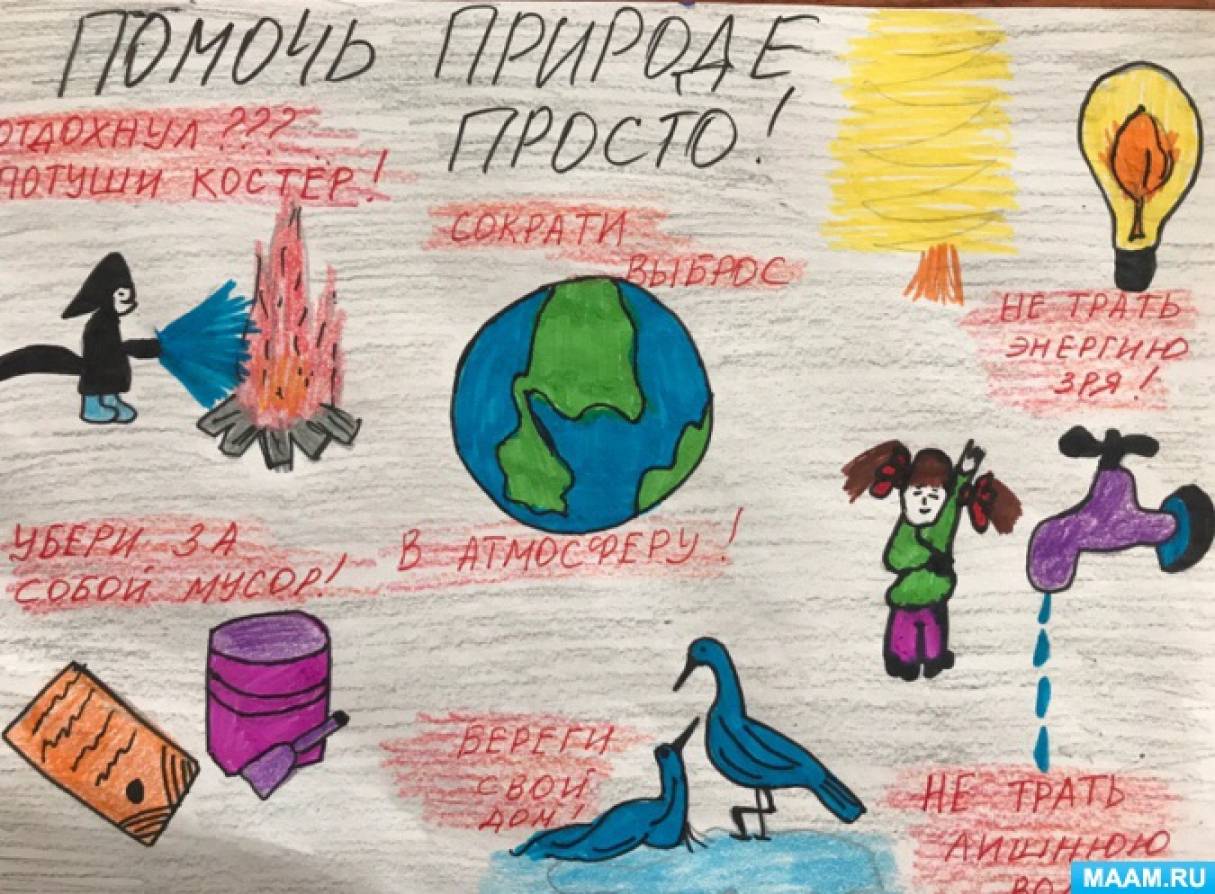 ПОМОЧЬ ПРИРОДЕ
ПРОСТО!
ОТДОХНУЛ???
ПОТУШИ КОСТЁР!
СОКРАТИ
ВЫБРОС
В АТМОСФЕРУ!
НЕ ТРАТЬ
ЭНЕРГИЮ
ЗРЯ!
УБЕРИ ЗА
СОБОЙ МУСОР!
БЕРЕГИ
СВОЙ
ДОМ!
НЕ ТРАТЬ
ЛИШНЮЮ
MAAM.RU